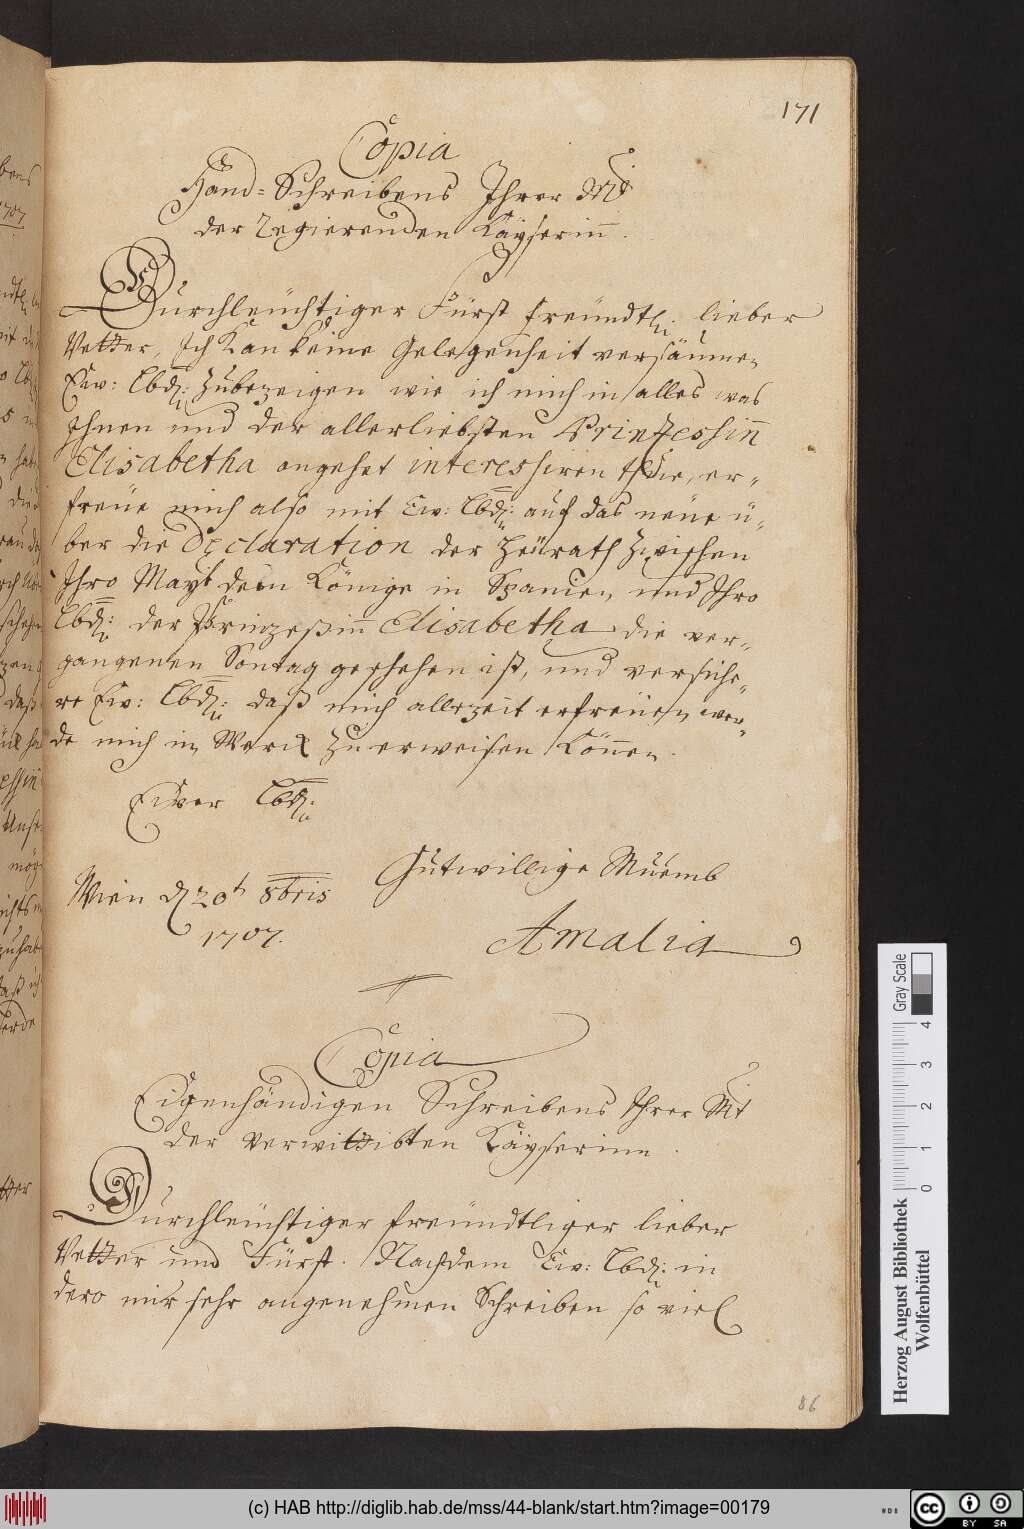 171
Copia
Hand-Schreibens Ihrer Mt
der regierenden Käyserinn.
Durchleüchtiger Fürst freündtl: lieber
Vetter, Ich kan keine Gelegenheit versäumen
Ew: Lbd: zubezeigen wie ich mich in alles was
Ihnen und der allerliebsten Printzessinn
Elisabetha angehet interessiren thue, er-
freüe mich also mit Ew: Lbd: auf das neüe ü-
ber die Declaration der Heürath zwischen
Ihro Mayt dem Könige in Spanien und Ihro
Lbd: der Prinzeßinn Elisabetha die ver-
gangenen Sontag geschehen ist, und versiche-
re Ew: Lbd: daß mich allezeit erfreüen wer-
de mich in Werck zu erweisen können.
Ewer Lbd:
Gutwillige Muemb
Wien d 20t 8bris
1707.
Amalia
Copia
Eigenhändigen Schreibens Ihrer Mt
der verwittibten Käyserinn.
Durchleüchtiger freündtliger lieber
Vetter und Fürst. Nachdem Ew: Lbd: in
dero mir sehr angenehmen Schreiben so viel
86
Herzog August Bibliothek
Wolfenbüttel
0 1 2 3 4
Gray Scale
(c) HAB http://diglib.hab.de/mss/44-blank/start.htm?image=00179
WDB
cc BY SA